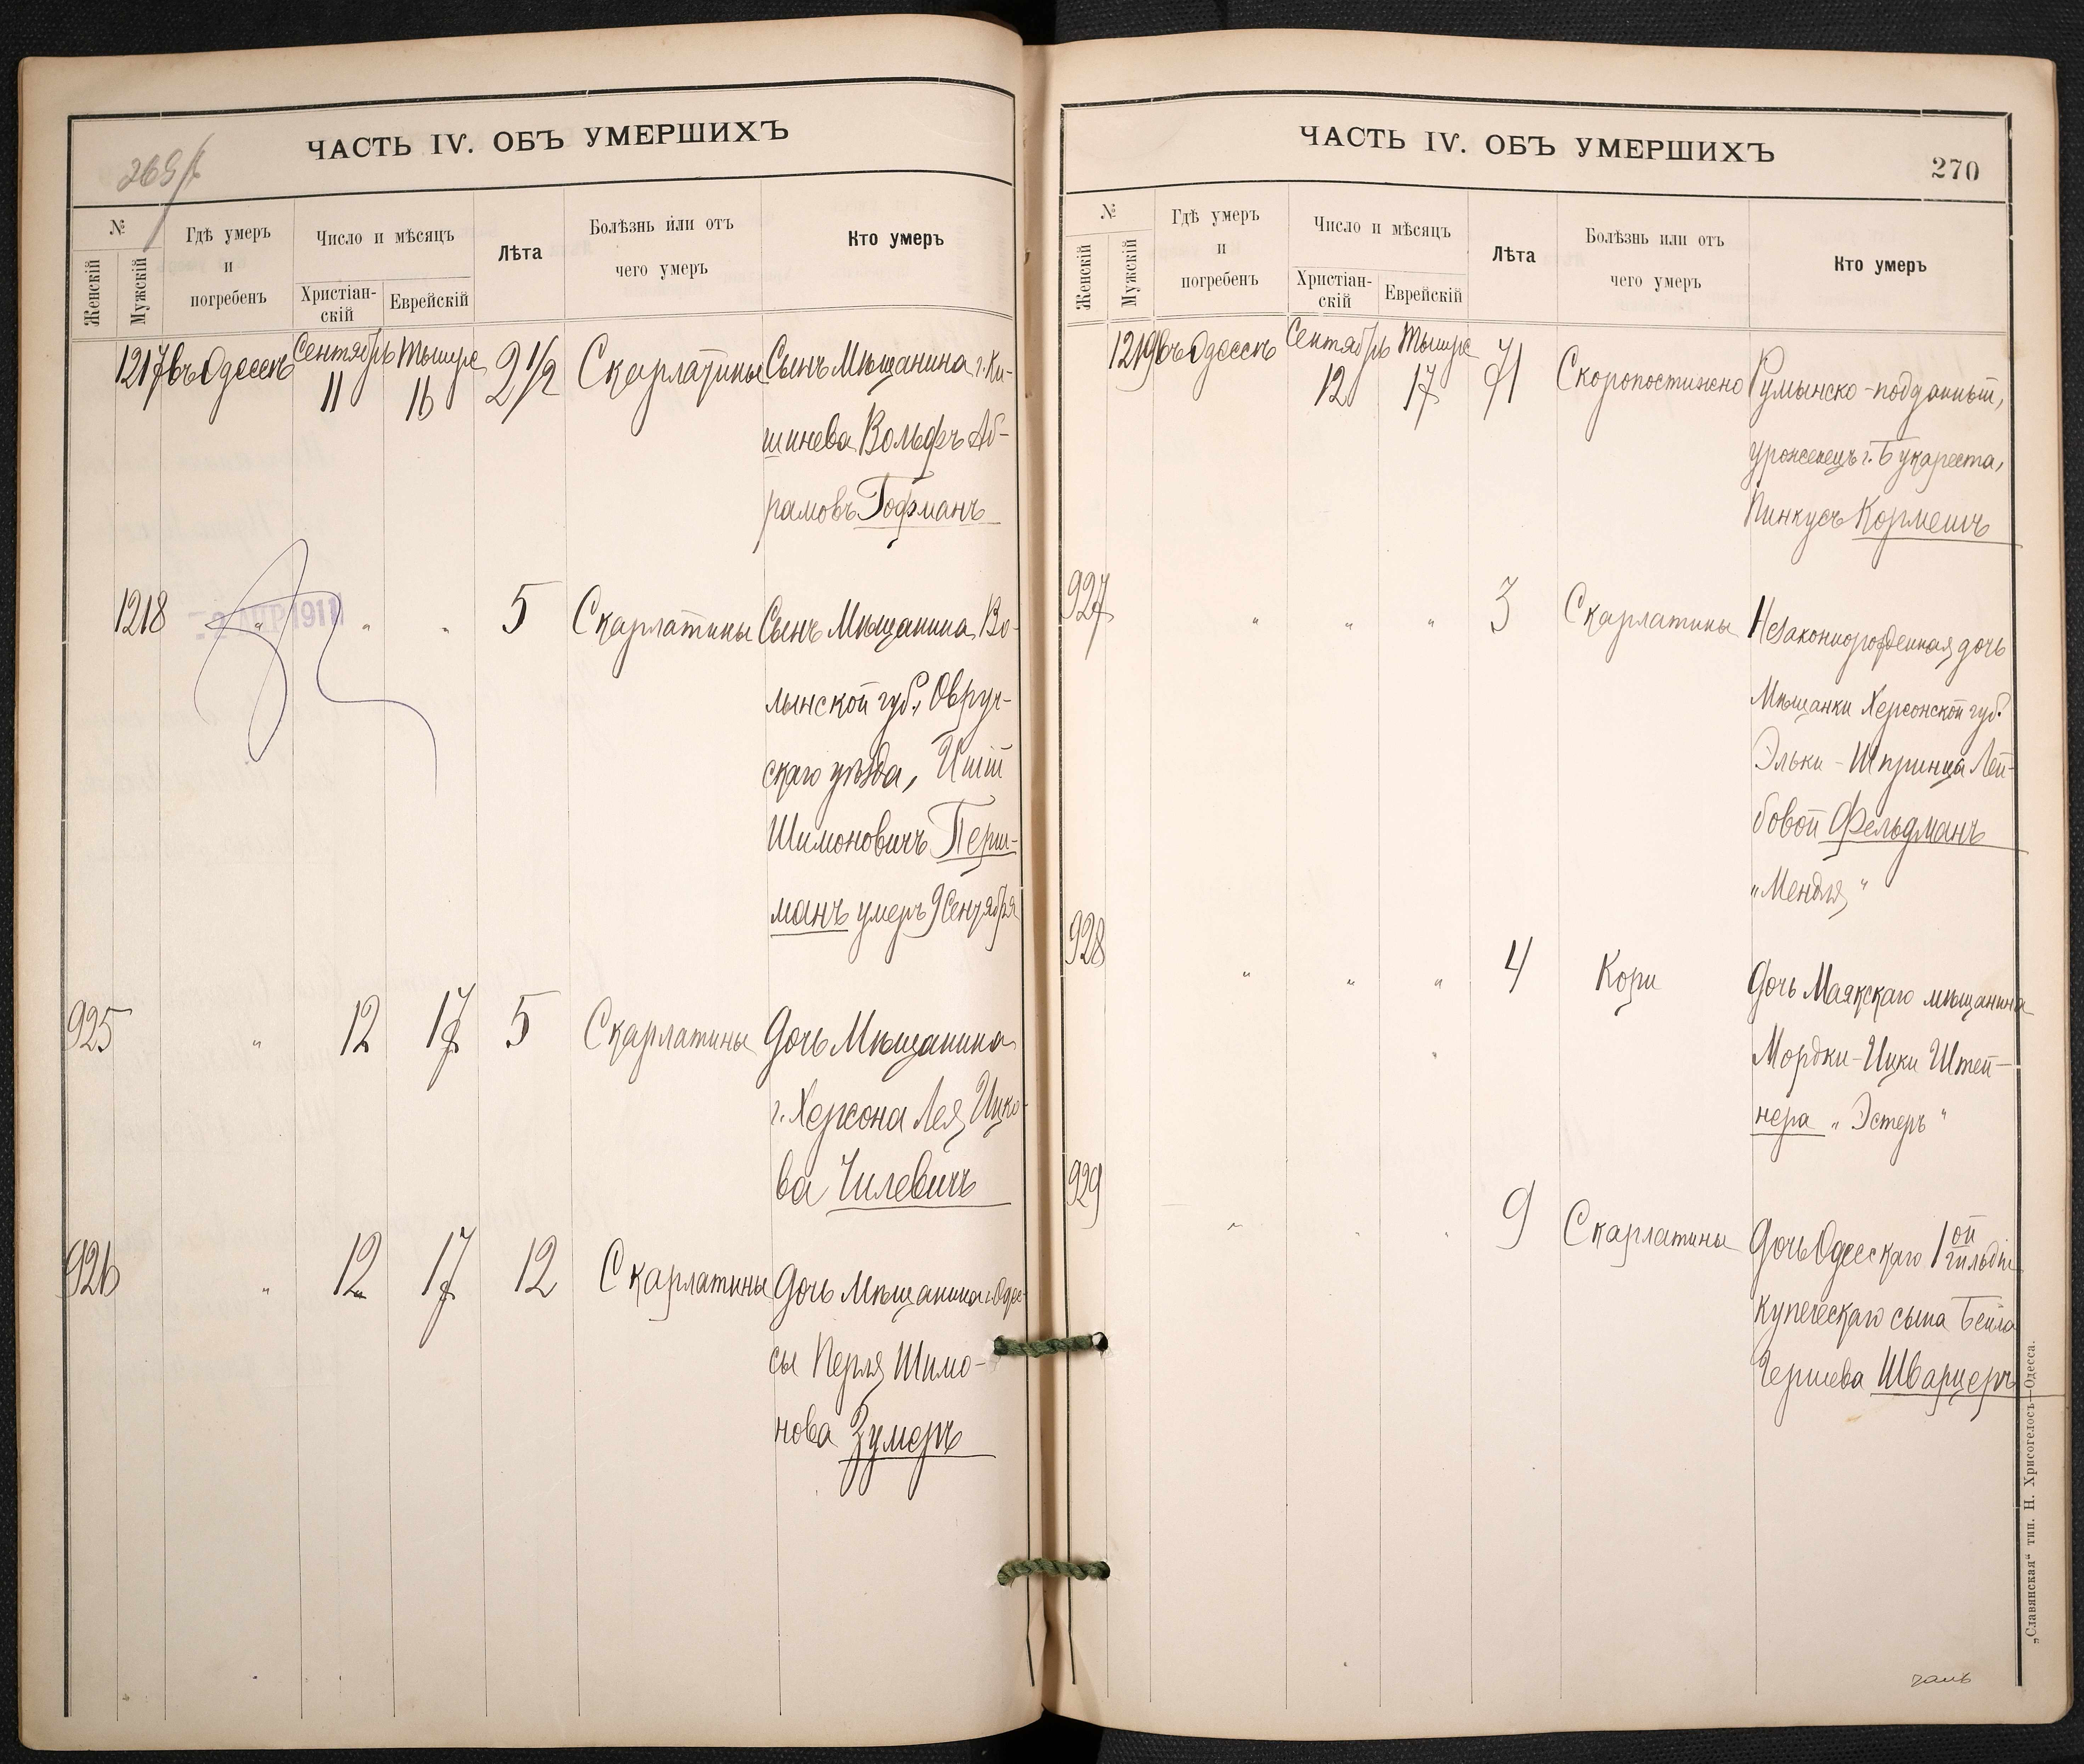 269/б
ЧАСТЬ IV. ОБЪ УМЕРШИХЪ
№
Женскій
Мужскій
Гдѣ умеръ
и
погребенъ
Число и мѣсяцъ
Христіан-
скій
Еврейскій
Лѣта
Болѣзнь или отъ
чего умеръ
Кто умеръ
1217 въ Одессѣ Сентябрь 11 Тышре 16 2 1/2 Скарлатины Сынъ Мѣщанина г. Ки-
шинева Вольфъ Аб-
рамовъ Гофманъ
1218 " " " 5 Скарлатины Сынъ Мѣщанина Во-
2 АПР 1911
лынской губ., Овруч-
скаго уѣзда,
Шимоновичъ Перш-
манъ умеръ 9 Сентября
925 " 12 17 5 Скарлатины Дочь Мѣщанина
г. Херсона Лея Ицко-
ва Чилевичъ
926 " 12 17 12 Скарлатины Дочь Мѣщанина г. Одес-
сы Перля Шимо-
нова Зумеръ
ЧАСТЬ IV. ОБЪ УМЕРШИХЪ
270
№
Женскій
Мужскій
Гдѣ умеръ
и
погребенъ
Число и мѣсяцъ
Христіан-
скій
Еврейскій
Лѣта
Болѣзнь или отъ
чего умеръ
Кто умеръ
1219 въ Одессѣ Сентябрь 12 Тышре 17 71 Скоропостижно Румынско-подданный,
уроженецъ г. Букареста,
Пинкусъ Кормешъ
927 " " " 3 Скарлатины Незаконнорожденная дочь
Мѣщанки Херсонской губ.
Эльки-Шпринца Лей-
бовой Фельдманъ
"Мендля"
928 " " " 4 Кори Дочь Маякскаго мѣщанина
Мордки-Ицки Штей-
нера "Эстеръ"
929 " " " 9 Скарлатины Дочь Одесскаго 1ой гильдіи
купеческаго сына Бейла
Гершева Шварцеръ
„Славянская“ тип. Н. Хрисогелосъ—Одесса.